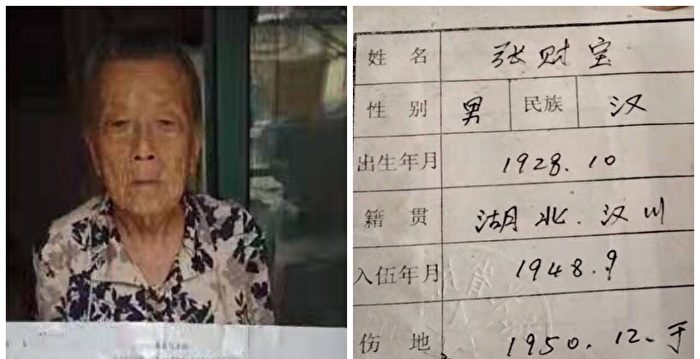 姓 名 张财宝
性 别 男 民族 汉
出生年月 1928.10
籍 贯 湖北.汉川
入伍年月 1948.9
伤 地 1950.12.于